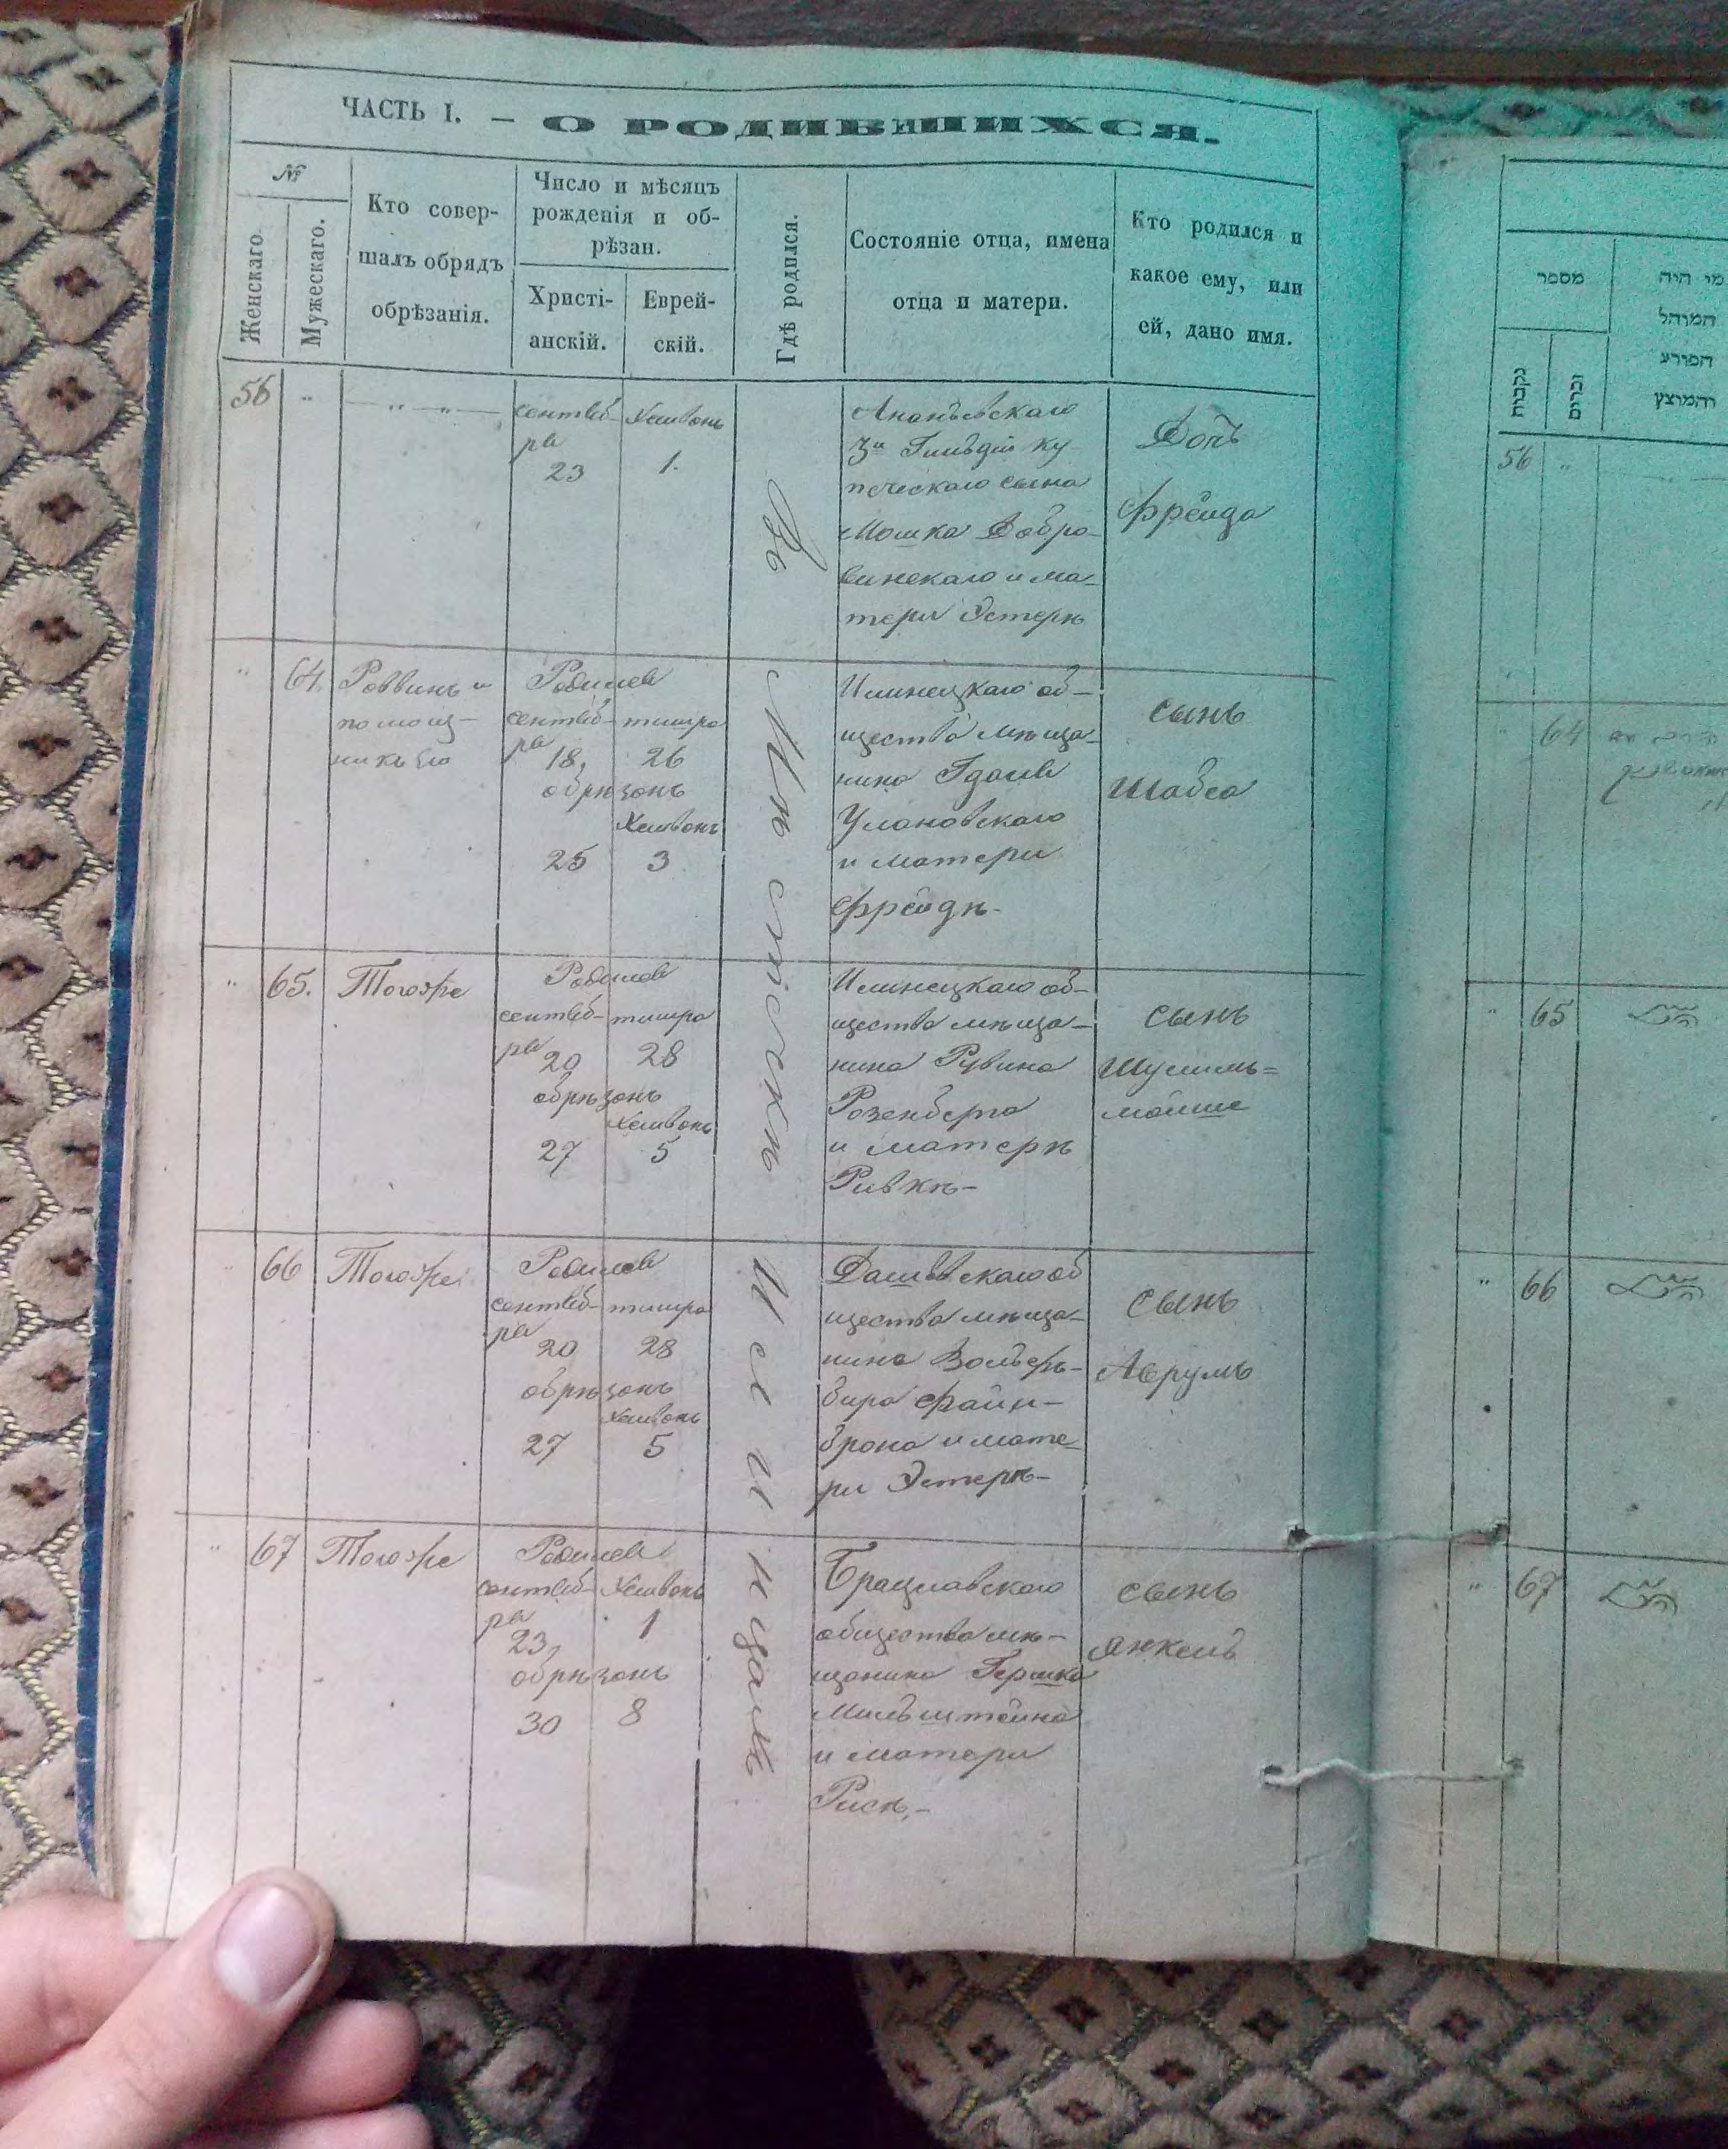 ЧАСТЬ I. — О РОДИВШИХСЯ.
№
Женскаго.
Мужескаго.
Кто совер-
шалъ обрядъ
обрѣзанія.
Число и мѣсяцъ
рожденія и об-
рѣзан.
Христі-
анскій.
Еврей-
скій.
Гдѣ родился.
Состояніе отца, имена
отца и матери.
Кто родился и
какое ему, или
ей, дано имя.
Въ Мѣстечкѣ Ильинцахъ
56 " — " — " —
сентяб-
ря
23
Хешвонъ
1.
Ананьевскаго
3й Гильдіи ку-
печескаго сына
Мошка Добро-
винскаго и ма-
тери Эстеръ
Дочь
Фрейда
" 64. Раввинъ и
помощ-
никъ его
Родился
сентяб-
ря
18,
тишра
26
обрѣзанъ
Хешвонъ
25 3
Илинецкаго об-
щества мѣща-
нина
Улановскаго
и матери
Фрейдѣ-
сынъ
Шабса
" 65. Тогоже
Родился
сентяб-
ря
20
тишра
28
обрѣзанъ
Хешвонъ
27 5
Илинецкаго об-
щества мѣща-
нина Рувина
Розенберга
и матерѣ
Ривкѣ-
сынъ
Шулимъ=
мойше
66 Тогоже
Родился
сентяб-
ря
20
тишра
28
обрѣзанъ
Хешвонъ
27 5
Дашевскаго об
щества мѣща-
нина Вольфъ-
бира Файн-
брона и мате-
ри Эстерѣ-
сынъ
Аврумъ
" 67 Тогоже
Родился
сентяб-
ря
23,
Хешвонъ
1
обрѣзанъ
30 8
Брацлавскаго
общества мѣ-
щанина Гершка
Мильштейна
и матери
Рисѣ.-
сынъ
Янкель
מספר
נקבות
זכרים
מי היה
המוהל
הפורע
והמוצץ
56 "
" 64
" 65
" 66
" 67